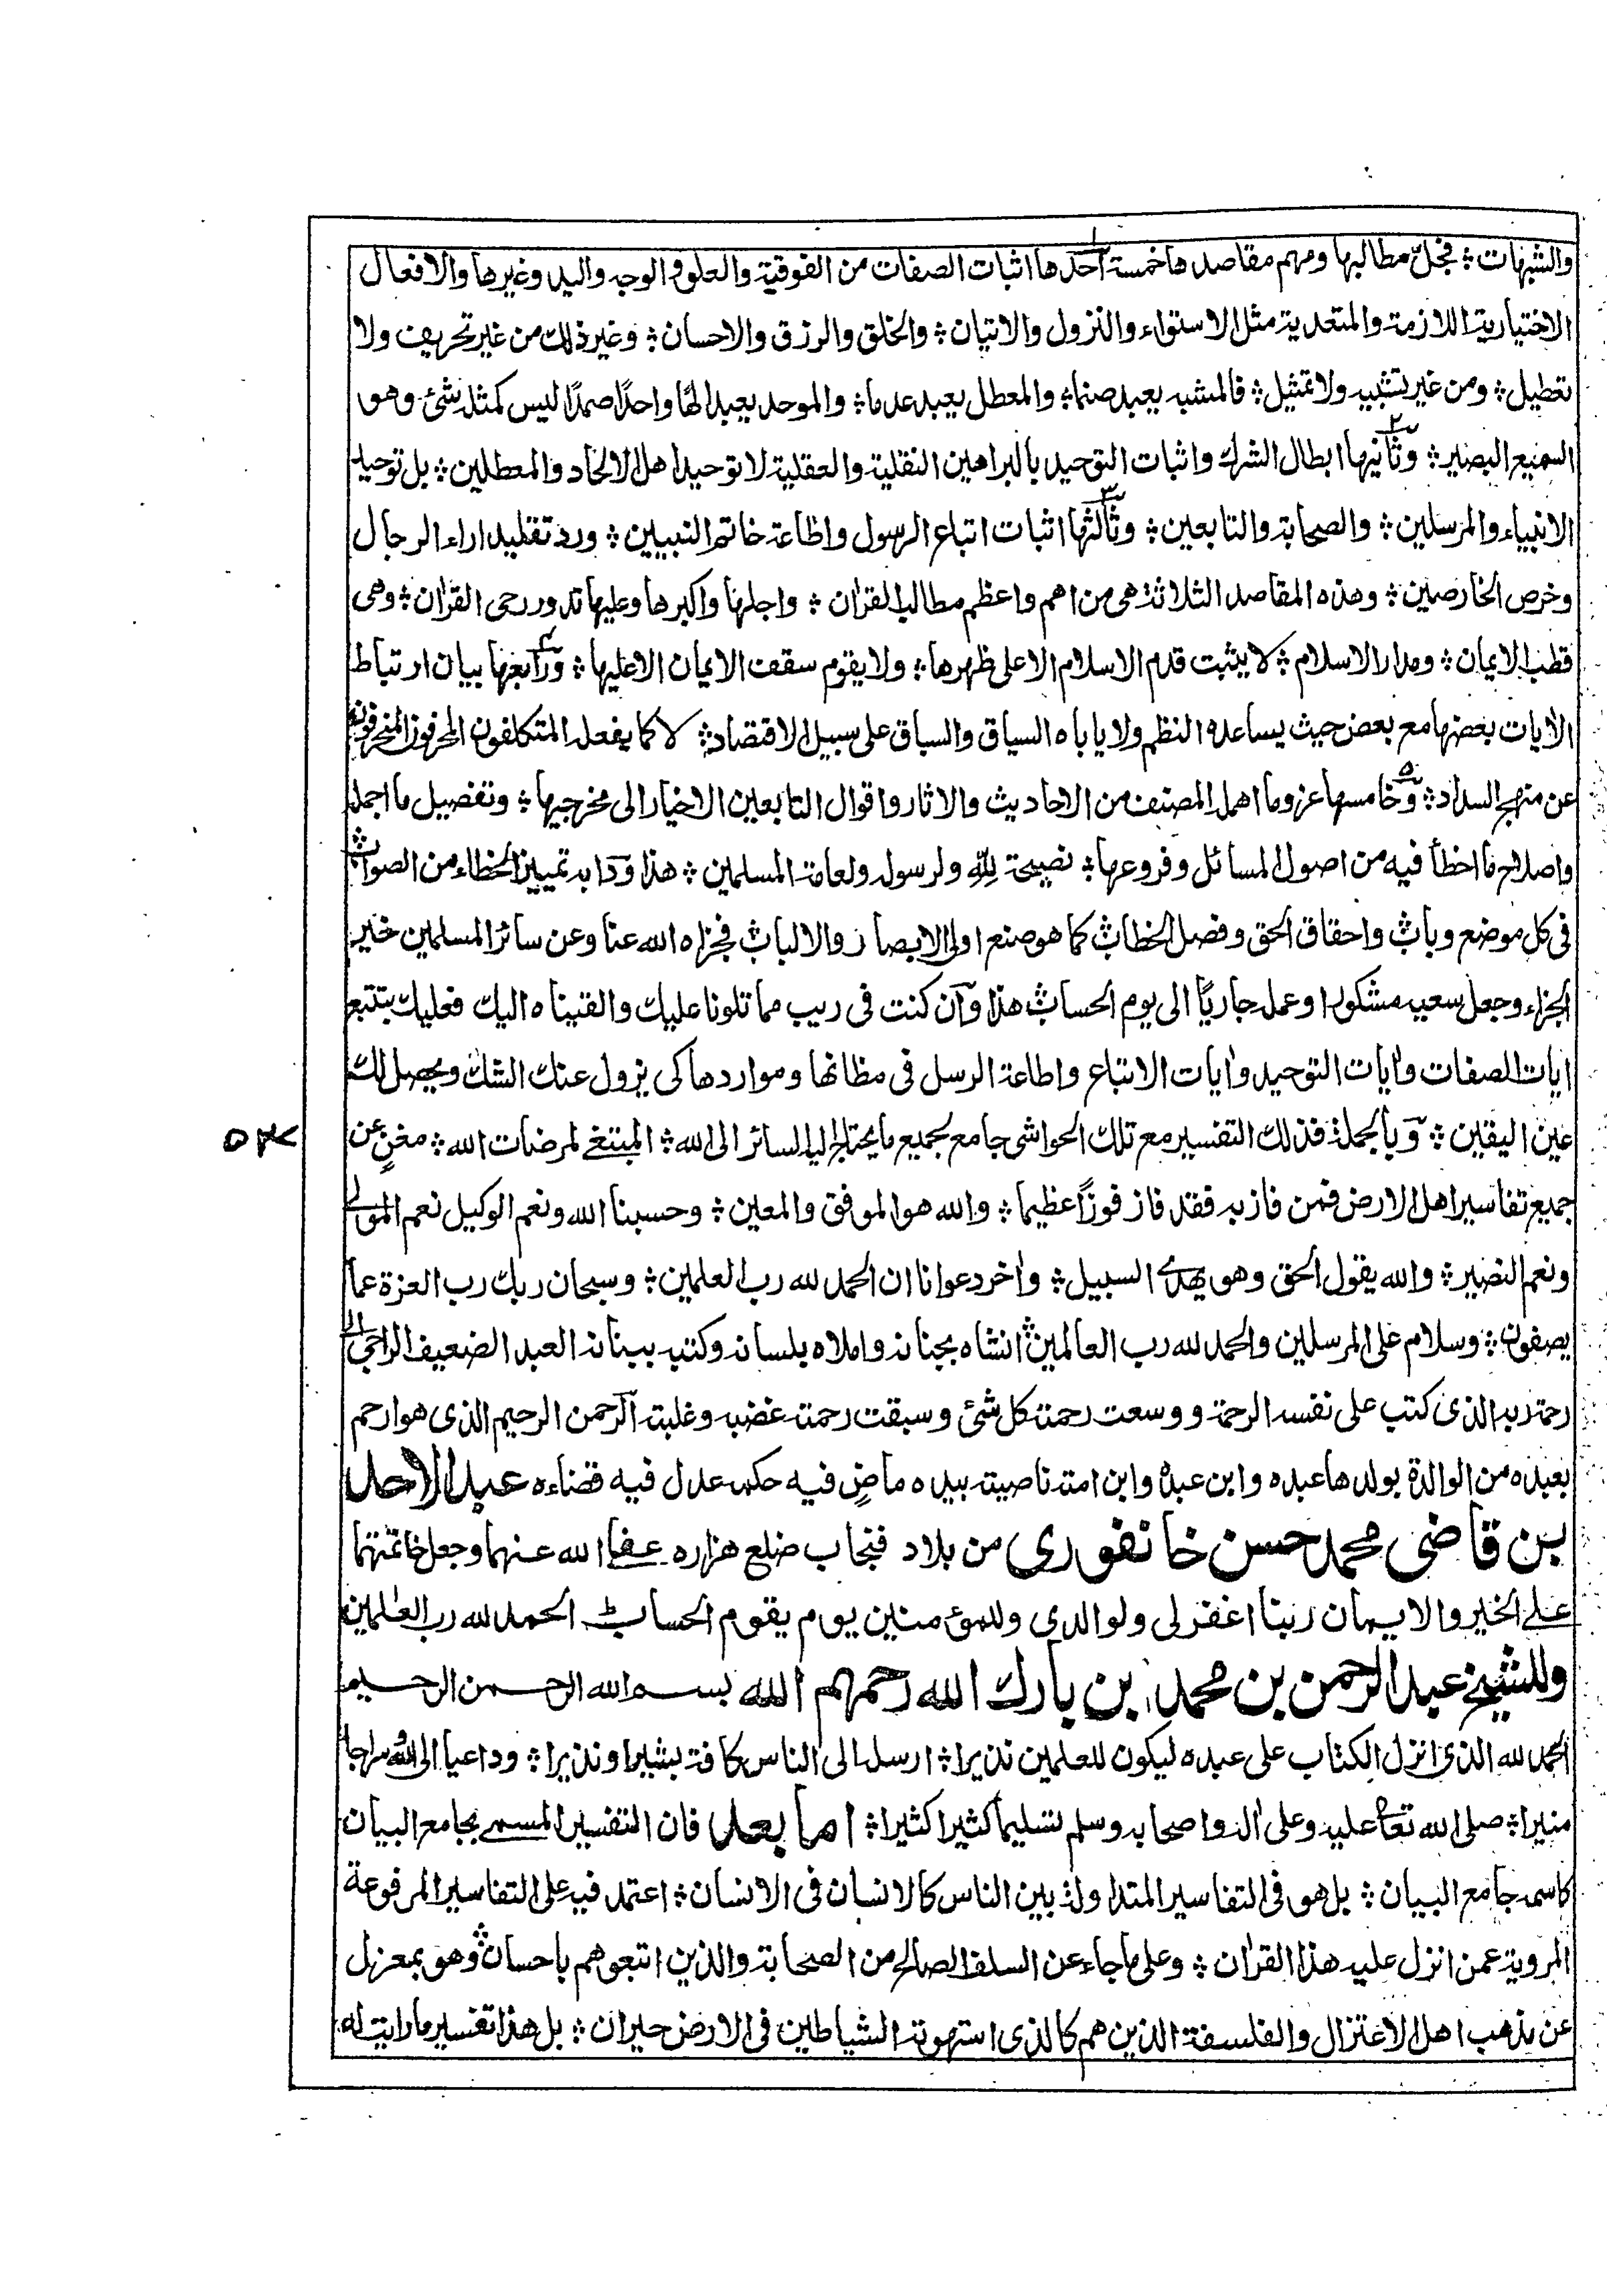 والشبهات ؞ فجلّ مطالبها ومهم مقاصدها خمسة احدها اثبات الصفات من الفوقية والعلو والوجه واليد وغيرها والافعال
الاختيارية اللازمة والمتعدية مثل الاستواء والنزول والاتيان ؞ والخلق والرزق والاحسان ؞ وغير ذلك من غير تحريف ولا
تعطيل ؞ ومن غير تشبيه ولا تمثيل ؞ فالمشبه يعبد صنما ؞ والمعطل يعبد عدما ؞ والموحد يعبد الها واحدًا صمدًا ليس كمثله شئ وهو
السميع البصير ؞ وثانيها ابطال الشرك واثبات التوحيد بالبراهين النقلية والعقلية لا توحيد اهل الالحاد والمعطلين ؞ بل توحيد
الانبياء والمرسلين ؞ والصحابة والتابعين ؞ وثالثها اثبات اتباع الرسول واطاعة خاتم النبيين ؞ ورد تقليد اراء الرجال
وخرص الخارصين ؞ وهذه المقاصد الثلاثة هى من اهم واعظم مطالب القران ؞ واجلها واكبرها وعليها تدور رحى القران ؞ وهى
قطب الايمان ؞ ومدار الاسلام ؞ لا يثبت قدم الاسلام الا على ظهرها ؞ ولا يقوم سقف الايمان الا عليها ؞ ورابعها بيان ارتباط
الاٰيات بعضها مع بعض حيث يساعده النظم ولا ياباه السياق والسباق على سبيل الاقتصاد ؞ لا كما يفعله المتكلفون المحرفون المنحرفون
عن منهج السداد ؞ وخامسها عزو ما اهمل المصنف من الاحاديث والاثار واقوال التابعين الاخيار الى مخرجيها ؞ وتفصيل ما اجمله
واصلاح ما اخطأ فيه من اصول المسائل وفروعها ؞ نصيحة لِلّٰهِ ولرسوله ولعامة المسلمين ؞ هذا ودابه تمييز الخطاء من الصواب ؞
فى كل موضع وباب ؞ واحقاق الحق وفصل الخطاب ؞ كما هو صنع اولى الابصار والالباب ؞ فجزاه الله عنا وعن سائر المسلمين خير
الجزاء وجعل سعيه مشكورا وعمله جاريًا الى يوم الحساب ؞ هذا وان كنت فى ريب مما تلونا عليك والقيناه اليك فعليك بتتبع
ايات الصفات واٰيات التوحيد واٰيات الاتباع واطاعة الرسل فى مظانها ومواردها كى يزول عنك الشك ويحصل لك
عين اليقين ؞ وبالجملة فذلك التفسير مع تلك الحواشى جامع لجميع ما يحتاج اليه السائر الى الله ؞ المبتغى لمرضات الله ؞ مغنٍ عن
جميع تفاسير اهل الارض فمن فاز به فقد فاز فوزًا عظيما ؞ والله هو الموفق والمعين ؞ وحسبنا الله ونعم الوكيل نعم المولى
ونعم النصير ؞ والله يقول الحق وهو يهدى السبيل ؞ واٰخر دعوانا ان الحمد لله رب العلمين ؞ وسبحان ربك رب العزة عما
يصفون ؞ وسلام على المرسلين والحمد لله رب العالمين ؞ انشاه بجنانه واملاه بلسانه وكتبه ببنانه العبد الضعيف الراجى الى
رحمة ربه الذى كتب على نفسه الرحمة ووسعت رحمته كل شئ وسبقت رحمته غضبه وغلبته الرحمن الرحيم الذى هو ارحم
بعبده من الوالدة بولدها عبده وابن عبده وابن امته ناصيته بيده ماضٍ فيه حكمه عدل فيه قضاءه عبد الاحد
بن قاضى محمد حسن خانفورى من بلاد فنجاب ضلع هزاره عفا الله عنهما وجعل خاتمتهما
على الخير والايمان ربنا اغفر لى ولوالدى وللمؤمنين يوم يقوم الحساب ؕ الحمد لله رب العٰلمين
وللشيخ عبد الرحمن بن محمد بن بارك الله رحمهم الله بسم الله الرحمن الرحيم
الحمد لله الذى انزل الكتاب على عبده ليكون للعلمين نذيرا ؞ ارسله الى الناس كافة بشيرا ونذيرا ؞ وداعيا الى الله وسراجا
منيرا ؞ صلى الله تعا عليه وعلى اٰله واصحابه وسلم تسليما كثيرا كثيرا ؞ اما بعد فان التفسير المسمى بجامع البيان
كاسمه جامع البيان ؞ بل هو فى التفاسير المتداولة بين الناس كالانسان فى الانسان ؞ اعتمد فيه على التفاسير المرفوعة
المروية عمن انزل عليه هذا القران ؞ وعلى ما جاء عن السلف الصالح من الصحابة والذين اتبعوهم باحسان ؞ وهو بمعزل
عن مذهب اهل الاعتزال والفلسفة الذين هم كالذى استهوته الشياطين فى الارض حيران ؞ بل هذا تفسير ما رايت له